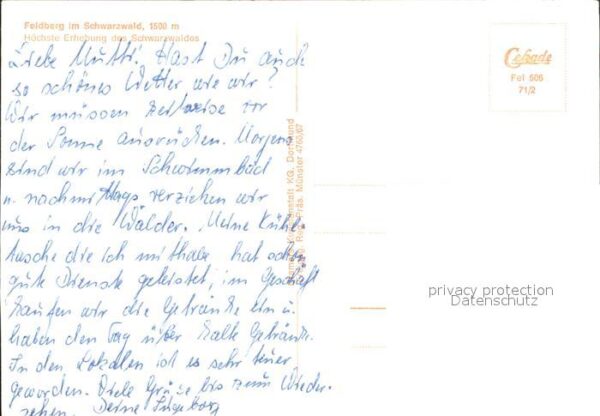 Feldberg im Schwarzwald, 1500 m
Höchste Erhebung des Schwarzwaldes
Liebe Mutti! Hast Du auch
so schönes Wetter wie wir?
Wir müssen zeitweise vor
der Sonne ausrücken. Morgens
sind wir im Schwimmbad
u. nachmittags verziehen wir
uns in die Wälder. Meine Kühl-
tasche die ich mithabe, hat schon
gute Dienste geleistet, im Geschäft
kaufen wir die Getränke ein u.
haben den Tag über kalte Getränke.
In den Lokalen ist es sehr teuer
geworden. Viele Grüße bis zum Wieder-
sehen. Deine Ingeborg
Cekade
Fel 506
71/2
KG, Dortmund
Münster 4760/67
privacy protection
Datenschutz